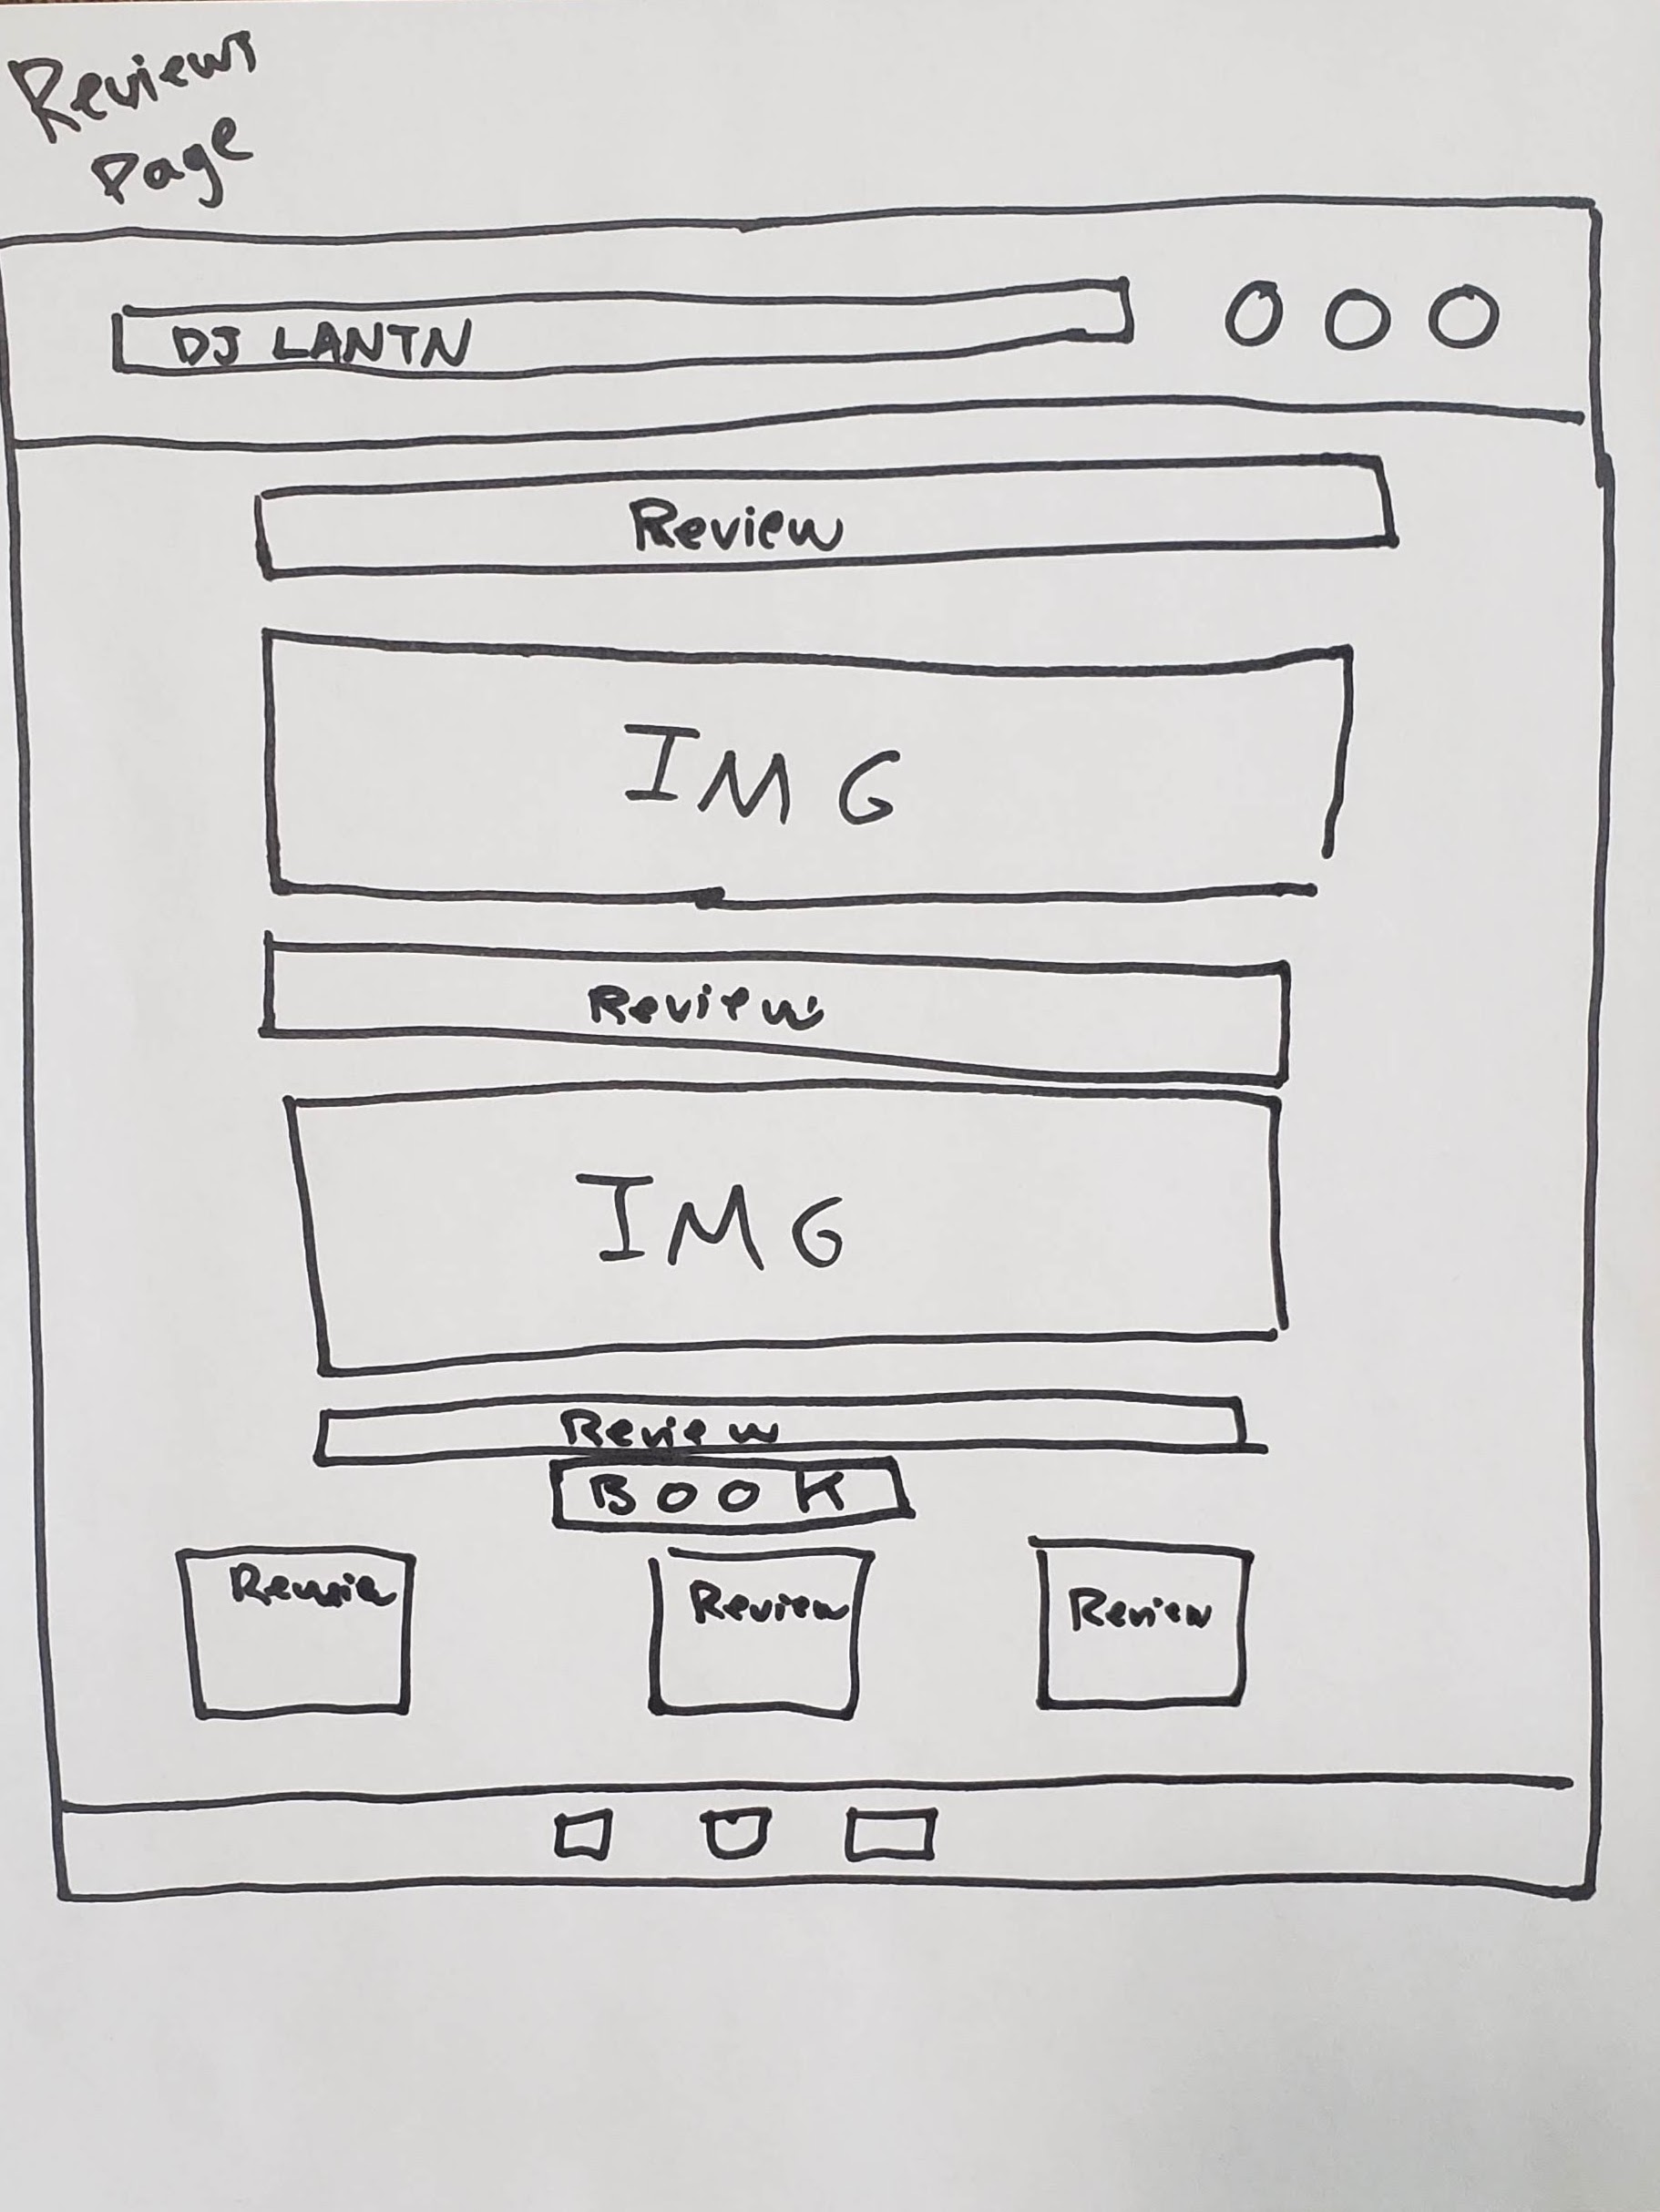 Reviews
Page
DJ LANTN
Review
IMG
Review
IMG
Review
BOOK
Review Review